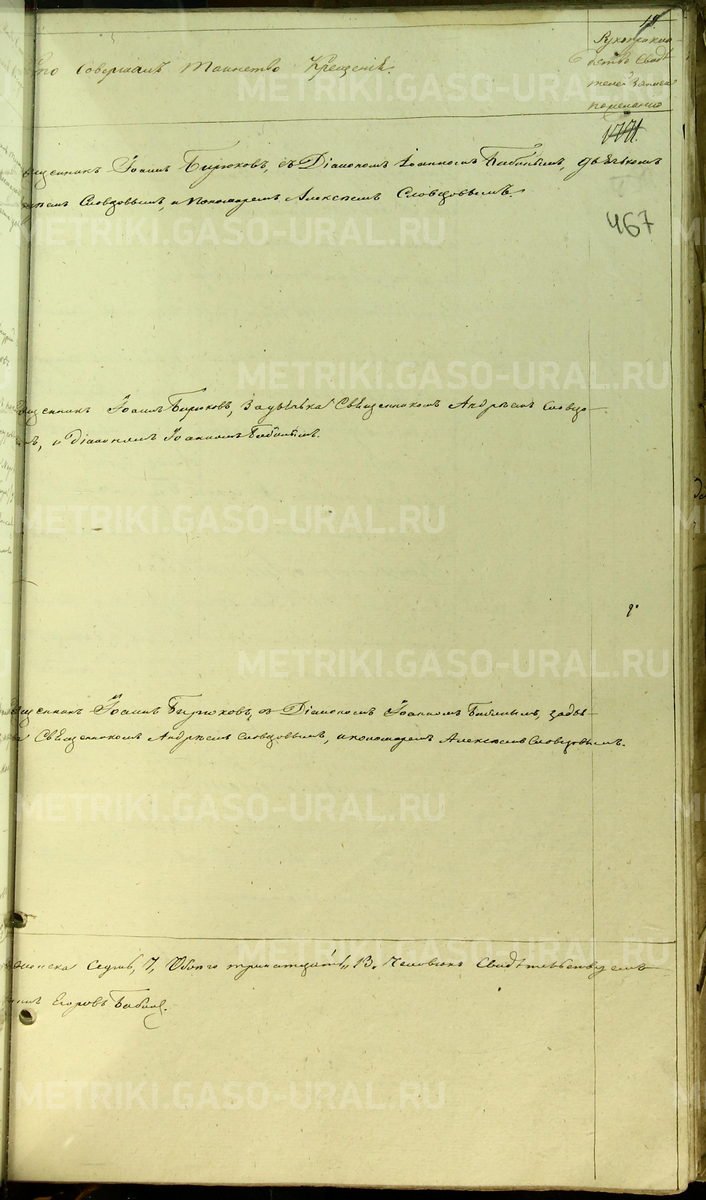 Кто Совершалъ Таинство Крещенія.
Рукоприклад
ство Свидѣ
телей записи
по желанію
467
Священникъ Іоаннъ Бирюковъ, съ Діакономъ Іоанномъ Бабинымъ, дьячкомъ
Словцовымъ, и Пономаремъ Алексѣемъ Словцовымъ.
Священникъ Іоаннъ Бирюковъ, Задьячка Священникомъ Андреемъ Словцо-
вымъ, и Діакономъ Іоанномъ Бабинымъ.
Священникъ Іоаннъ Бирюковъ, съ Діакономъ Іоанномъ Бабинымъ, задья-
чка Священникомъ Андреемъ Словцовымъ, и пономаремъ Алексѣемъ Словцовымъ.
женска Седмь, 7, Обоего тринатцать, 13, Человѣкъ Свидѣтельствуемъ
Егоровъ Бабинъ.
METRIKI.GASO-URAL.RU